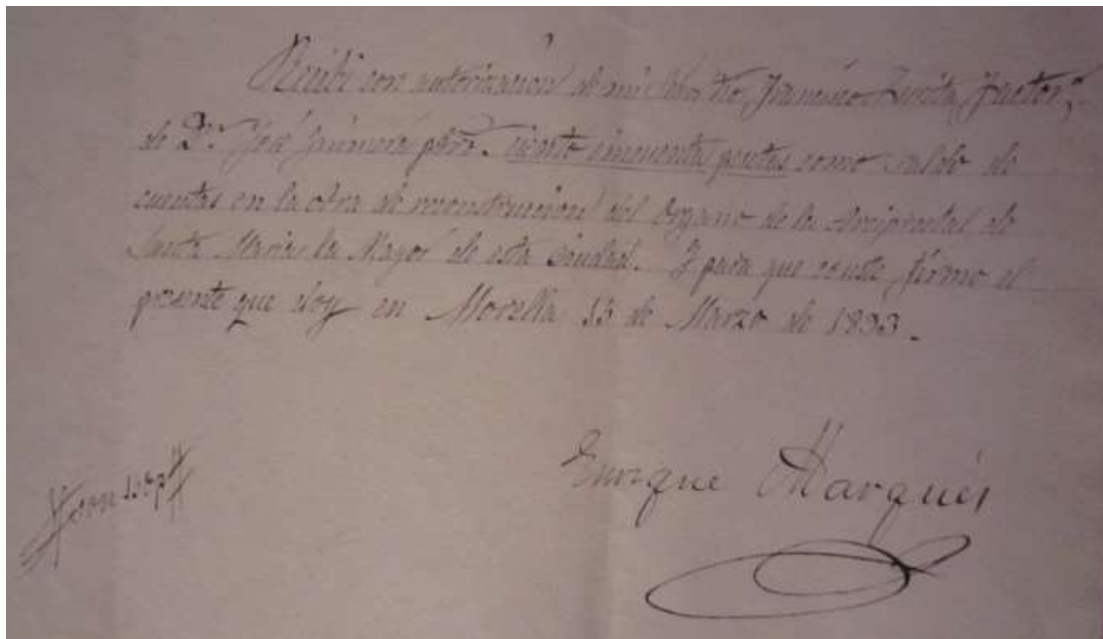 Recibi con autorización de mi tio Francisco Turita
de Dn. José pbro. ciento cincuenta pesetas como saldo de
cuentas en la obra de reconstrucion del Organo de la Arciprestal de
Santa Maria la Mayor de esta Ciudad. Y para que conste firmo el
presente que doy en Morella 15 de Marzo de 1893.
Enrique Marqués
son 150 p